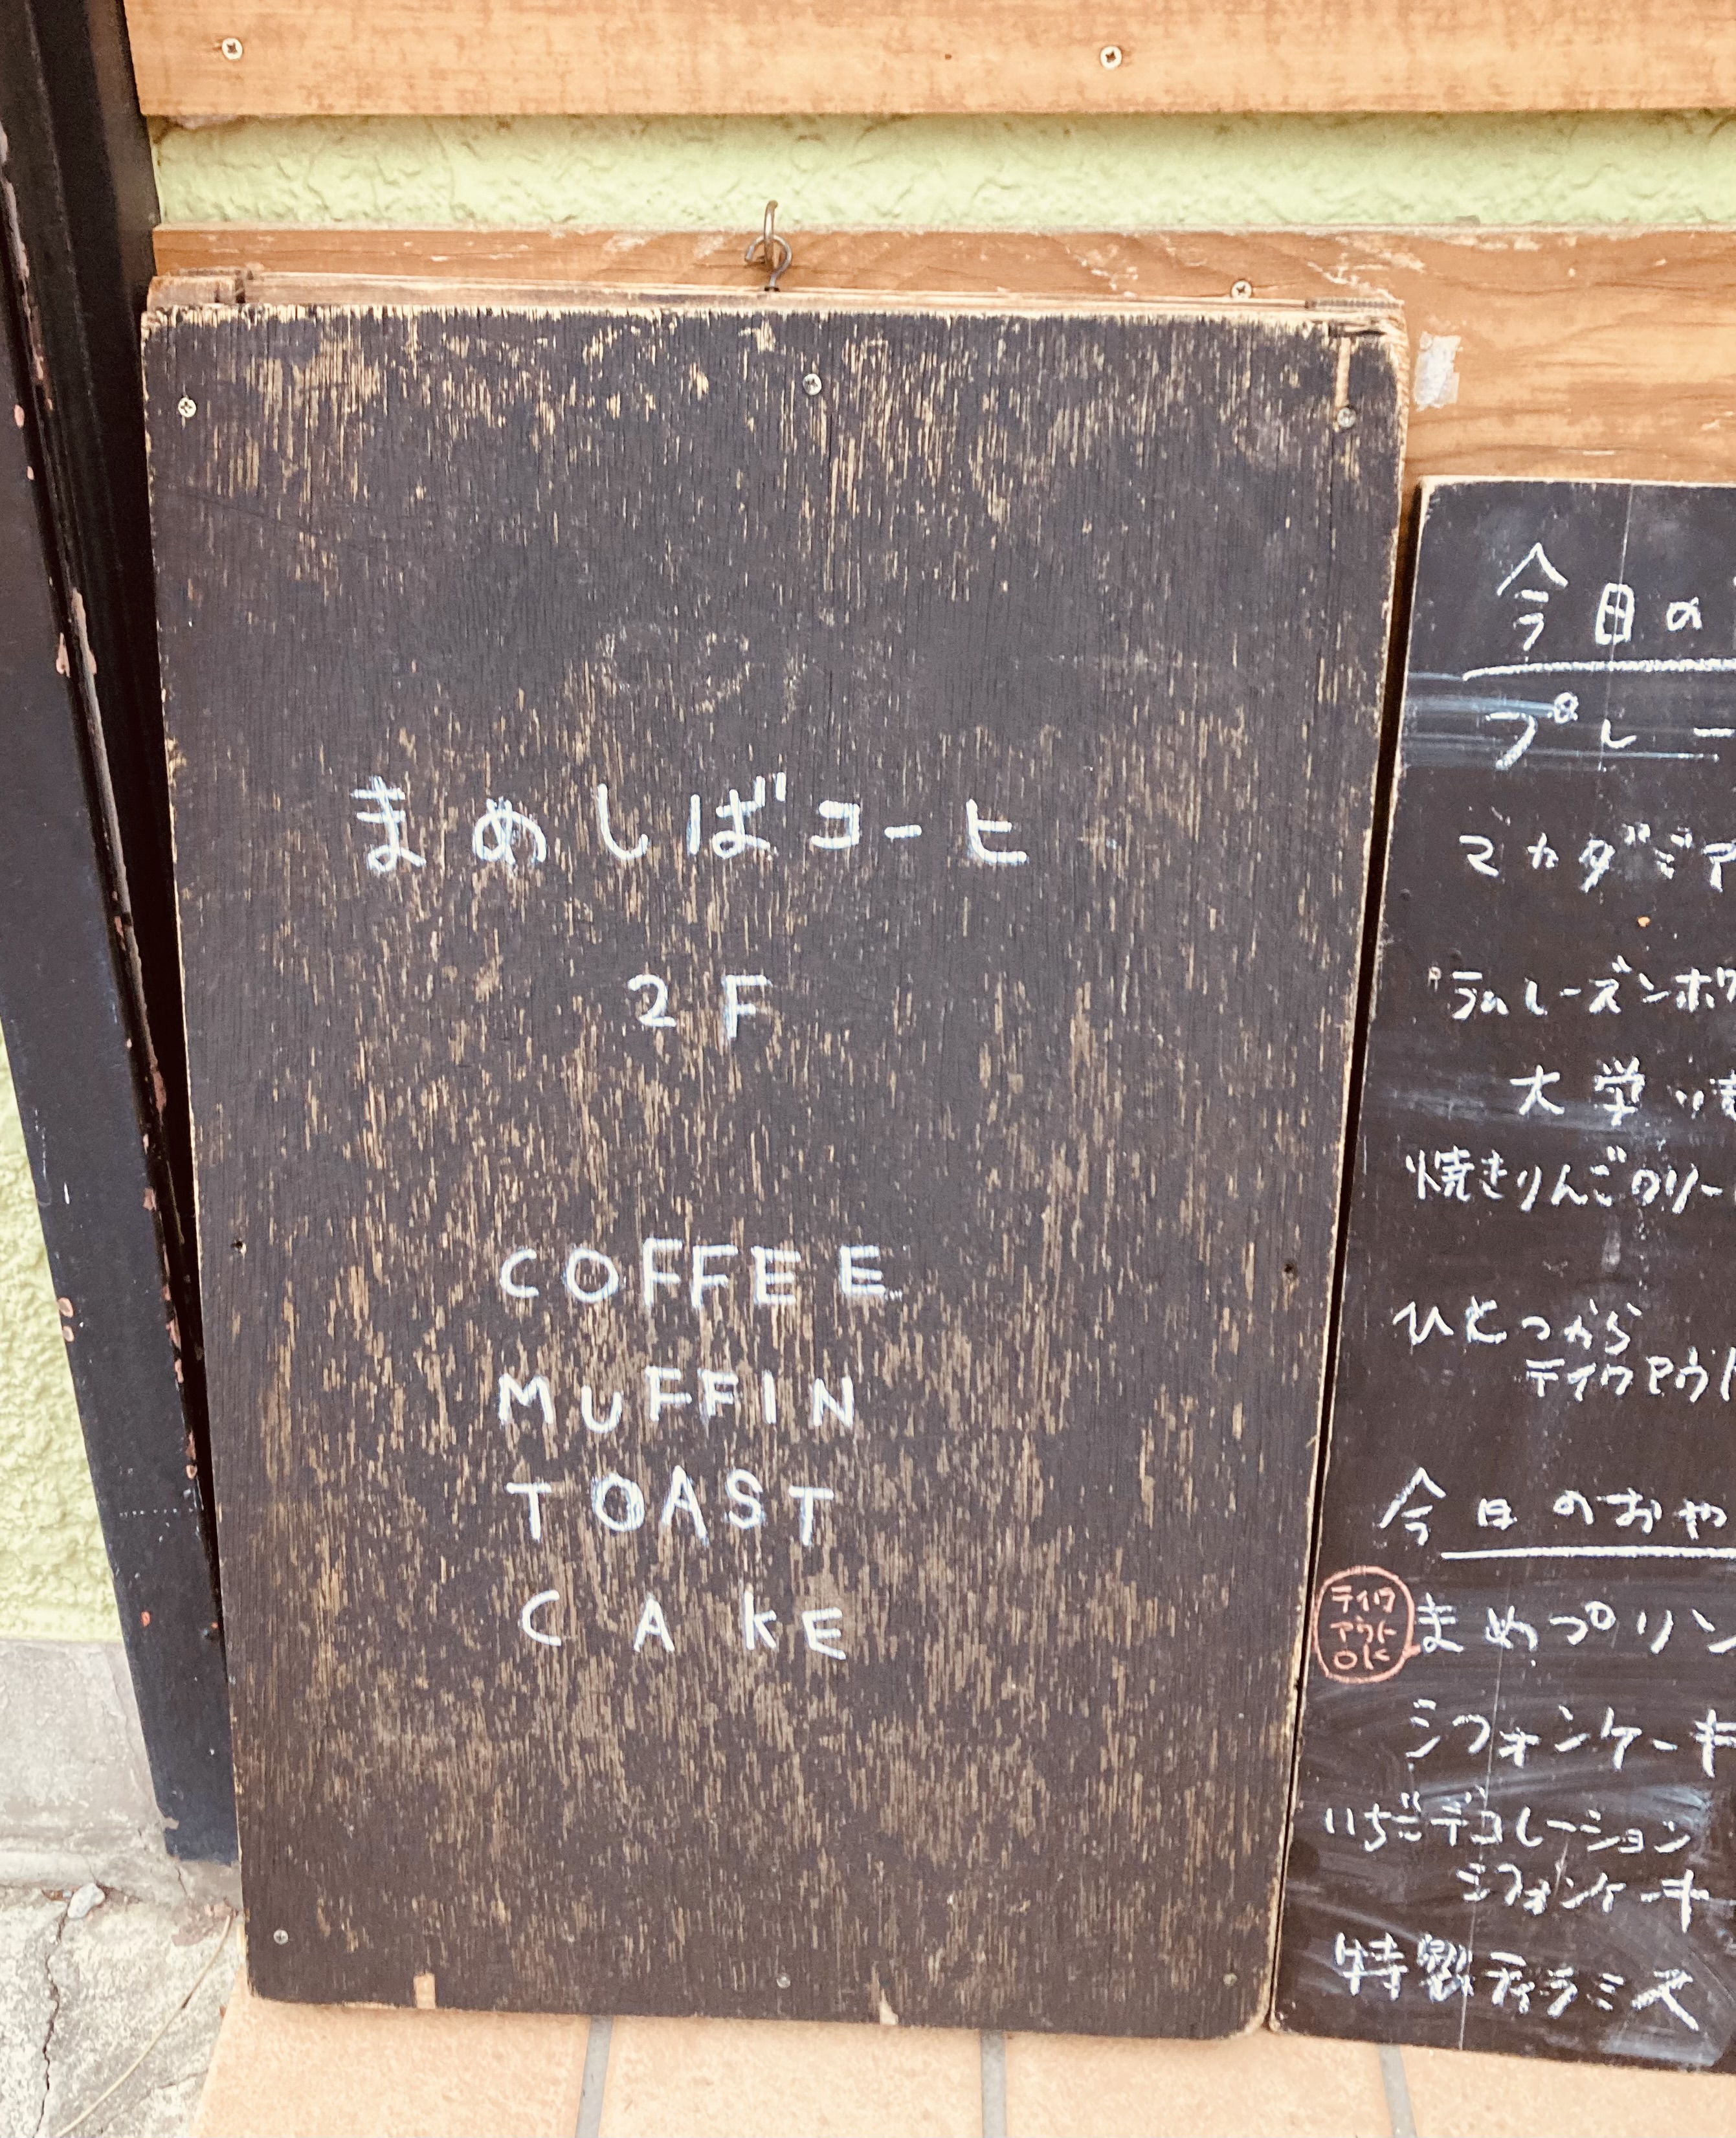 まめしばコーヒ
2F
COFFEE
MUFFIN
TOAST
CAKE
今日の
プレー
マカダミア
ラムレーズンホワ
大学い
焼きりんごクリー
ひとつから
テイクアウト
今日のおや
テイク
アウト
OK
まめプリン
シフォンケーキ
いちごデコレーション
シフォンケーキ
特製ティラミス